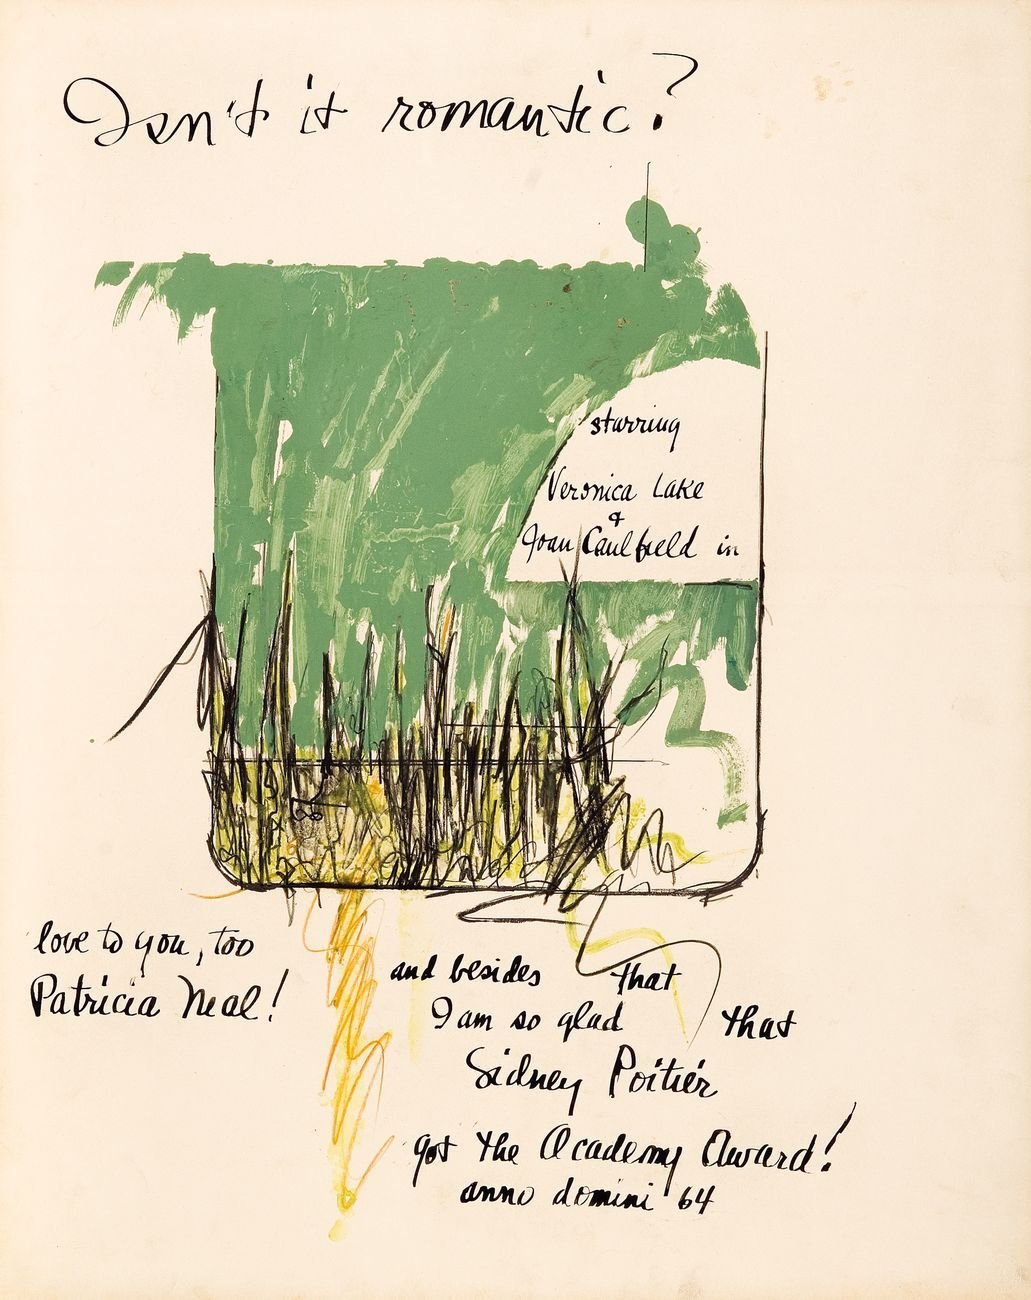 Isn't it romantic?
starring
Veronica Lake
&
Joan Caulfield in
love to you, too
Patricia Neal!
and besides that
I am so glad that
Sidney Poitier
got the Academy Award!
anno domini '64